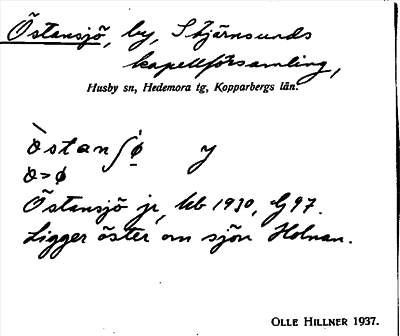 Östansjö, by, Stjärnsunds
kapellförsamling,
Husby sn, Hedemora tg, Kopparbergs län.
òstanʃǿ̣ y
ò>ó
Östansjö jr, kb 1930, G 97.
Ligger öster om sjön Holnan.
OLLE HILLNER 1937.